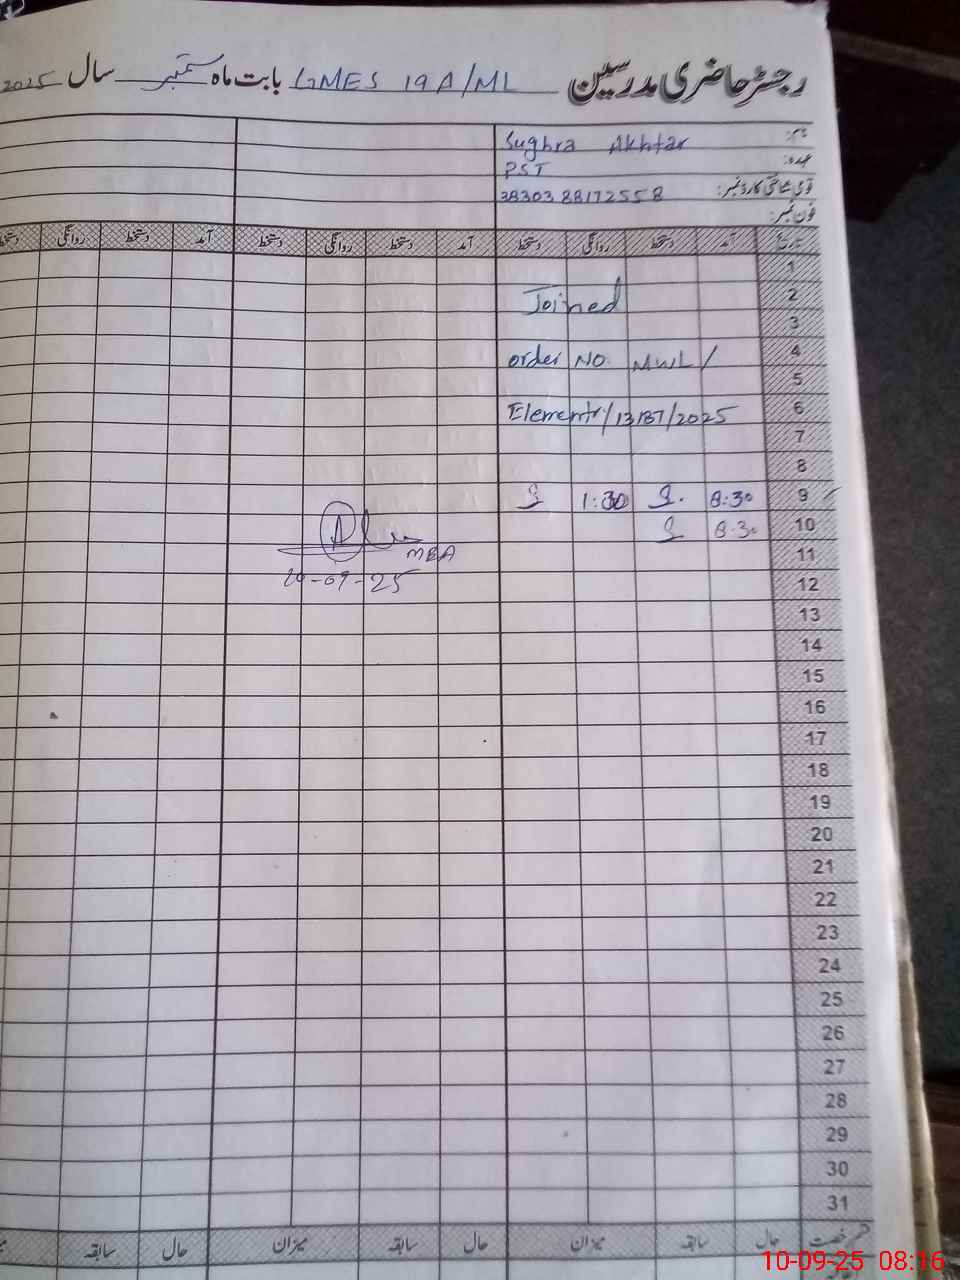 رجسٹر حاضری مدرسین GMES 19A/ML بابت ماہ ستمبر سال 2025
نام: Sughra Akhtar
عہدہ: PST
قومی شناختی کارڈ نمبر: 38303 88172558
فون نمبر:
تاریخ آمد دستخط روانگی دستخط آمد دستخط روانگی دستخط آمد دستخط روانگی دستخط
1
2 Joined
3
4 order NO. MWL/
5
6 /2025
7
8
9 8:30 1:30
10 8:30
11 MEA
12 -09-25
13
14
15
16
17
18
19
20
21
22
23
24
25
26
27
28
29
30
31
قسم رخصت حال سابقہ میزان حال سابقہ میزان حال سابقہ
10-09-25 08:16